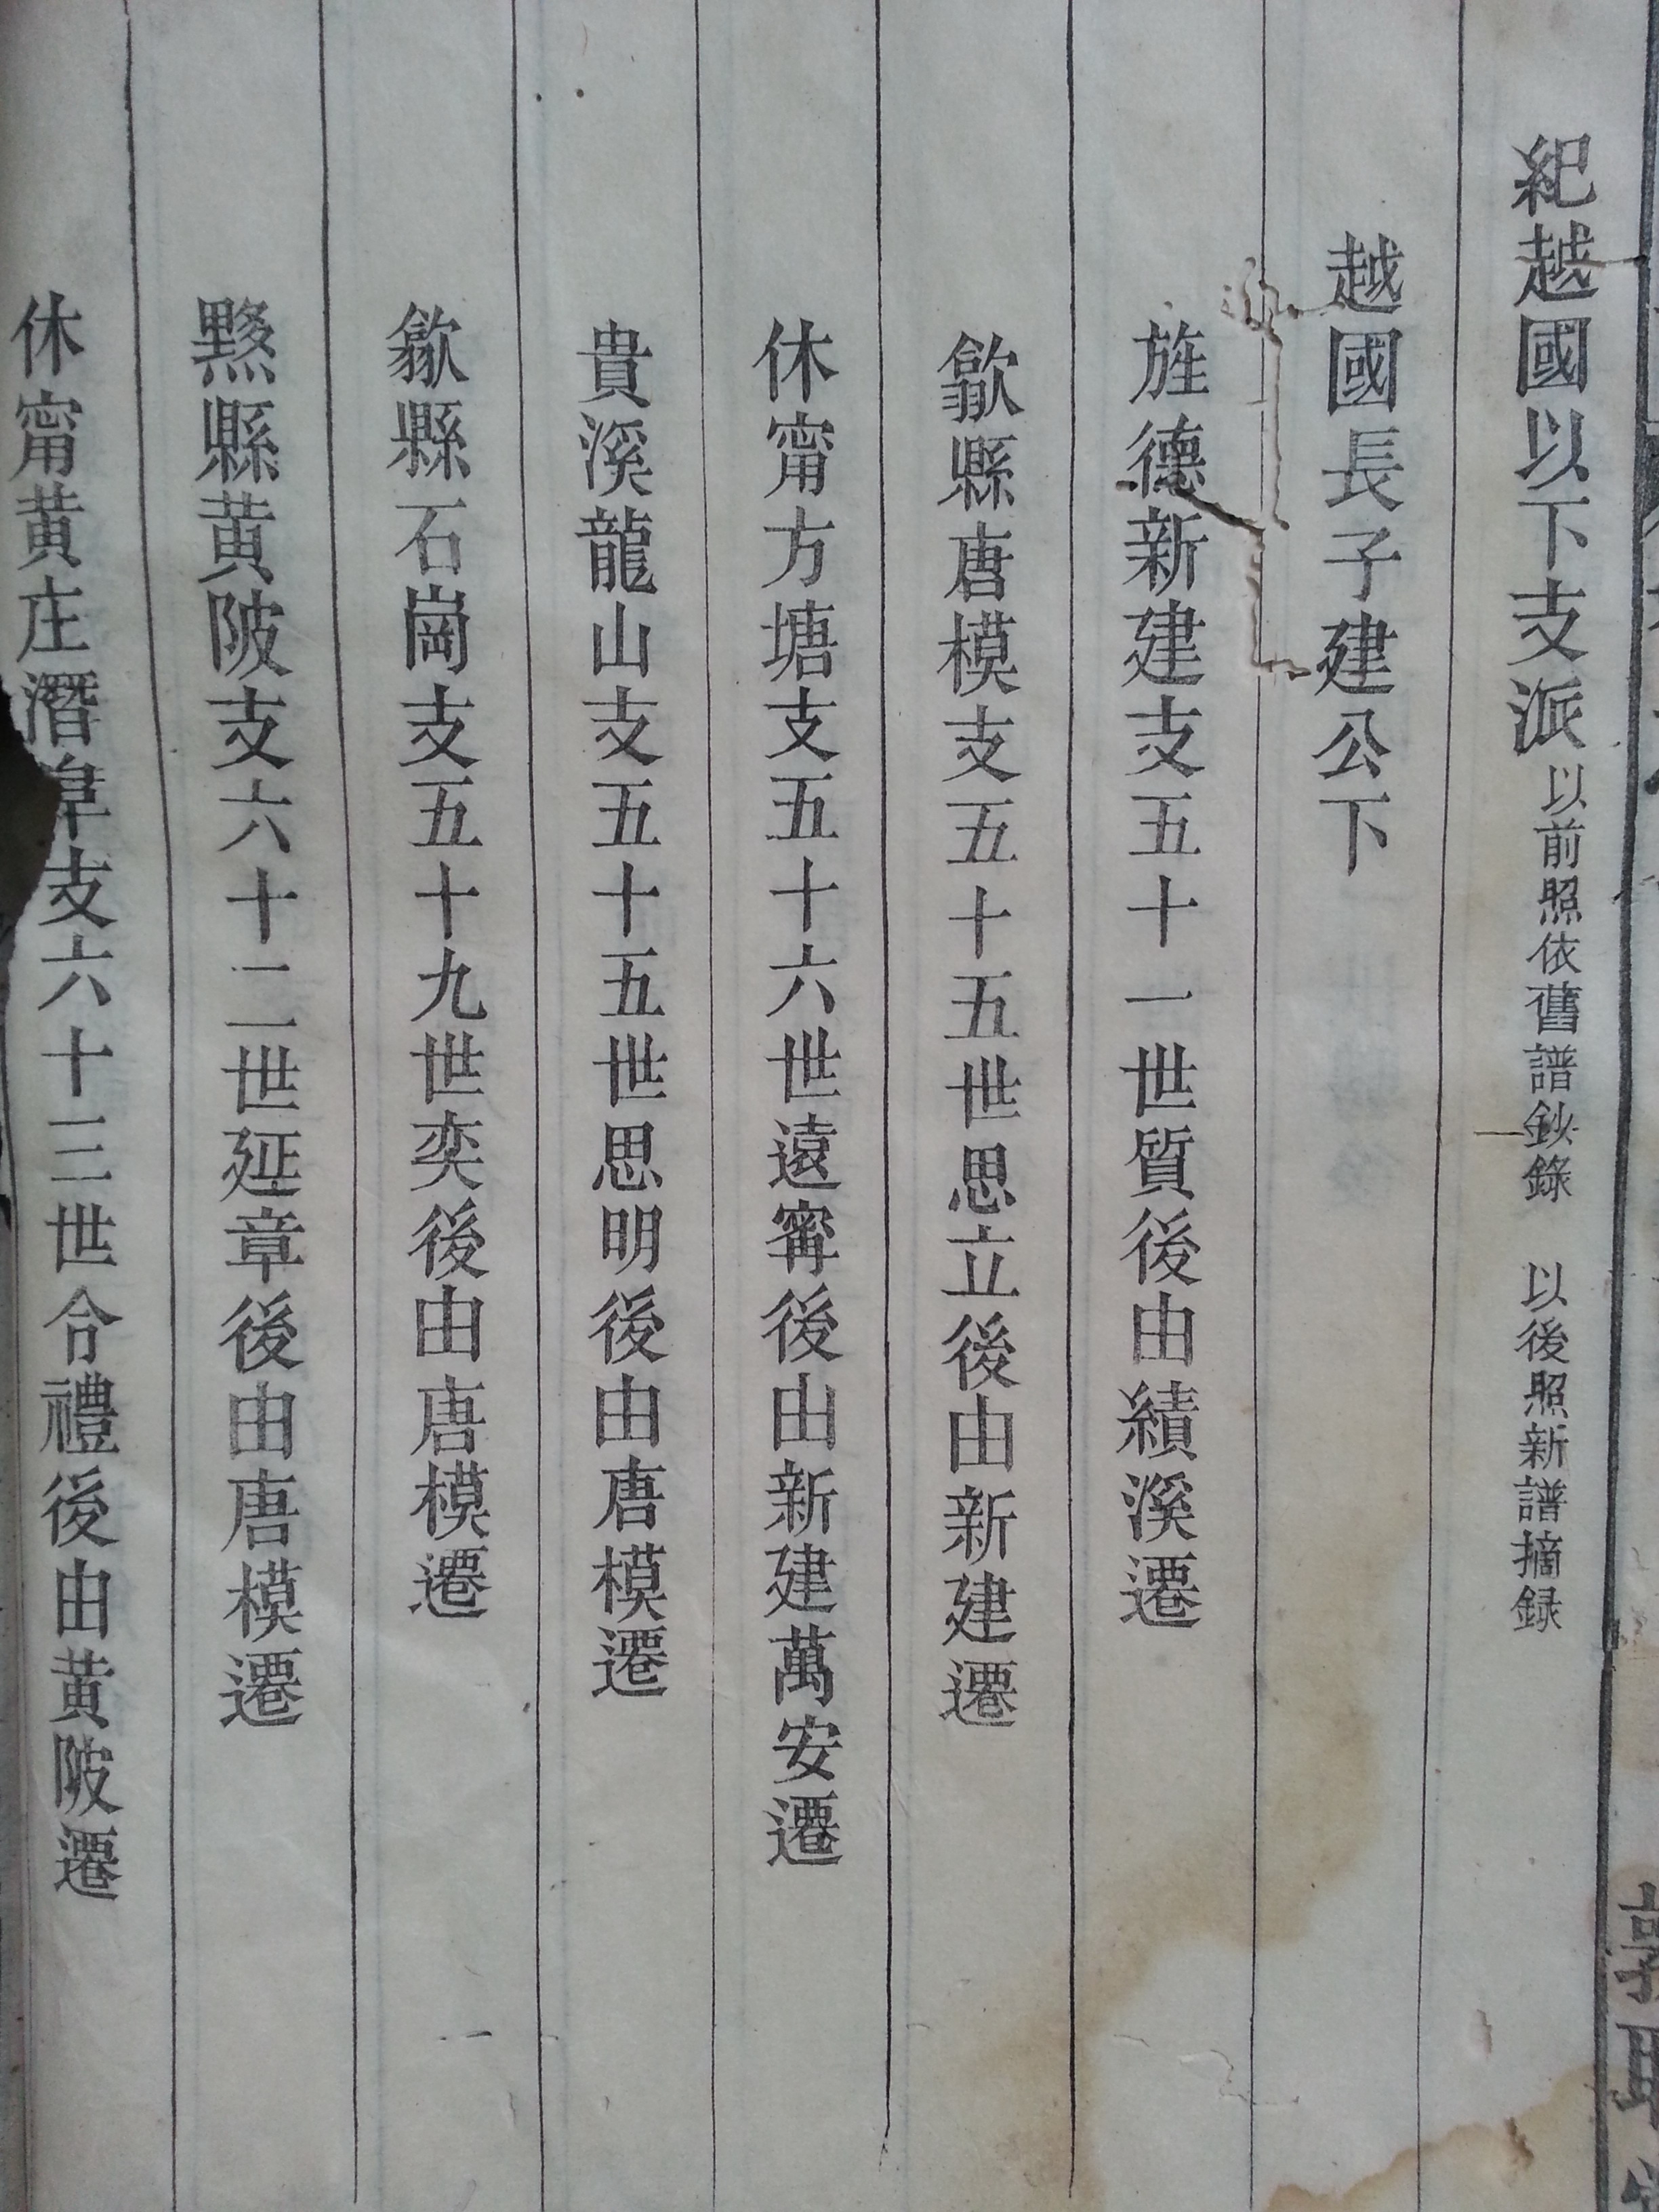 紀越國以下支派以前照依舊譜鈔錄 以後照新譜摘録
越國長子建公下
旌德新建支五十一世質後由績溪遷
歙縣唐模支五十五世思立後由新建遷
休甯方塘支五十六世遠甯後由新建萬安遷
貴溪龍山支五十五世思明後由唐模遷
歙縣石崗支五十九世奕後由唐模遷
黟縣黄陂支六十二世延章後由唐模遷
休甯黄庄潛阜支六十三世令禮後由黄陂遷